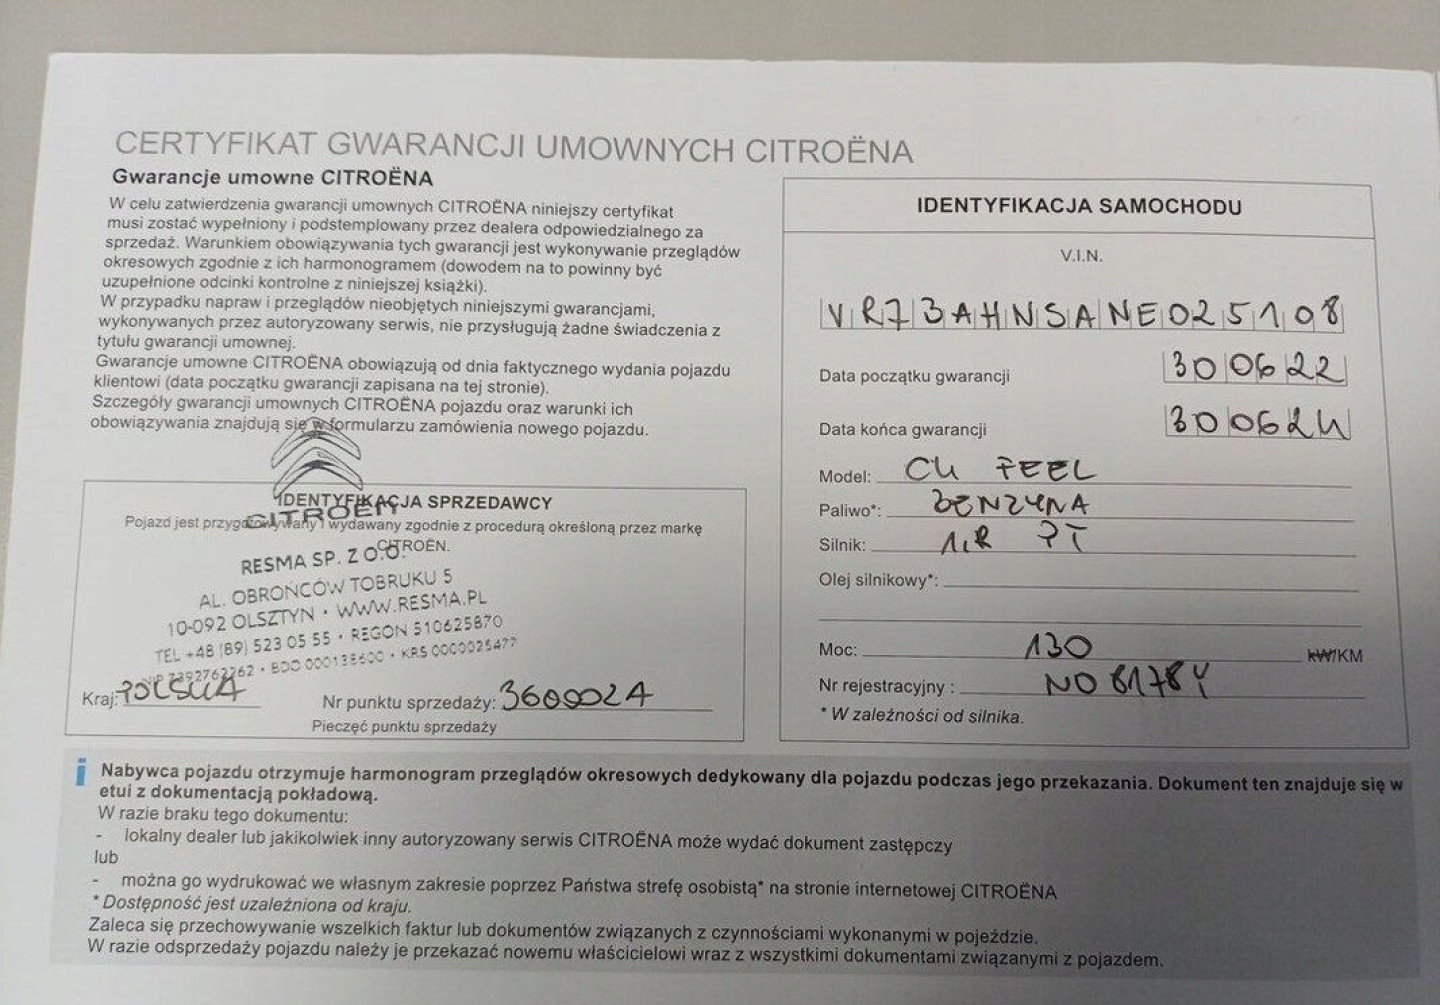 CERTYFIKAT GWARANCJI UMOWNYCH CITROËNA
Gwarancje umowne CITROËNA
W celu zatwierdzenia gwarancji umownych CITROËNA niniejszy certyfikat
musi zostać wypełniony i podstemplowany przez dealera odpowiedzialnego za
sprzedaż. Warunkiem obowiązywania tych gwarancji jest wykonywanie przeglądów
okresowych zgodnie z ich harmonogramem (dowodem na to powinny być
uzupełnione odcinki kontrolne z niniejszej książki).
W przypadku napraw i przeglądów nieobjętych niniejszymi gwarancjami,
wykonywanych przez autoryzowany serwis, nie przysługują żadne świadczenia z
tytułu gwarancji umownej.
Gwarancje umowne CITROËNA obowiązują od dnia faktycznego wydania pojazdu
klientowi (data początku gwarancji zapisana na tej stronie).
Szczegóły gwarancji umownych CITROËNA pojazdu oraz warunki ich
obowiązywania znajdują się w formularzu zamówienia nowego pojazdu.
IDENTYFIKACJA SPRZEDAWCY
CITROËN
Pojazd jest przygotowywany i wydawany zgodnie z procedurą określoną przez markę
CITROËN.
RESMA SP. Z O.O.
AL. OBROŃCÓW TOBRUKU 5
10-092 OLSZTYN • WWW.RESMA.PL
TEL +48 (89) 523 05 55 • REGON 510625870
NIP 7392762262 • BDO 000138600 • KRS 0000025477
Kraj: POLSKA Nr punktu sprzedaży: 360002A
Pieczęć punktu sprzedaży
IDENTYFIKACJA SAMOCHODU
V.I.N.
VR7BAHNSANE025108
Data początku gwarancji 300622
Data końca gwarancji 300624
Model: C4 FEEL
Paliwo*: BENZYNA
Silnik: 1.2 PT
Olej silnikowy*:
Moc: 130 kW/KM
Nr rejestracyjny : NO8178Y
* W zależności od silnika.
i Nabywca pojazdu otrzymuje harmonogram przeglądów okresowych dedykowany dla pojazdu podczas jego przekazania. Dokument ten znajduje się w
etui z dokumentacją pokładową.
W razie braku tego dokumentu:
- lokalny dealer lub jakikolwiek inny autoryzowany serwis CITROËNA może wydać dokument zastępczy
lub
- można go wydrukować we własnym zakresie poprzez Państwa strefę osobistą* na stronie internetowej CITROËNA
* Dostępność jest uzależniona od kraju.
Zaleca się przechowywanie wszelkich faktur lub dokumentów związanych z czynnościami wykonanymi w pojeździe.
W razie odsprzedaży pojazdu należy je przekazać nowemu właścicielowi wraz z wszystkimi dokumentami związanymi z pojazdem.